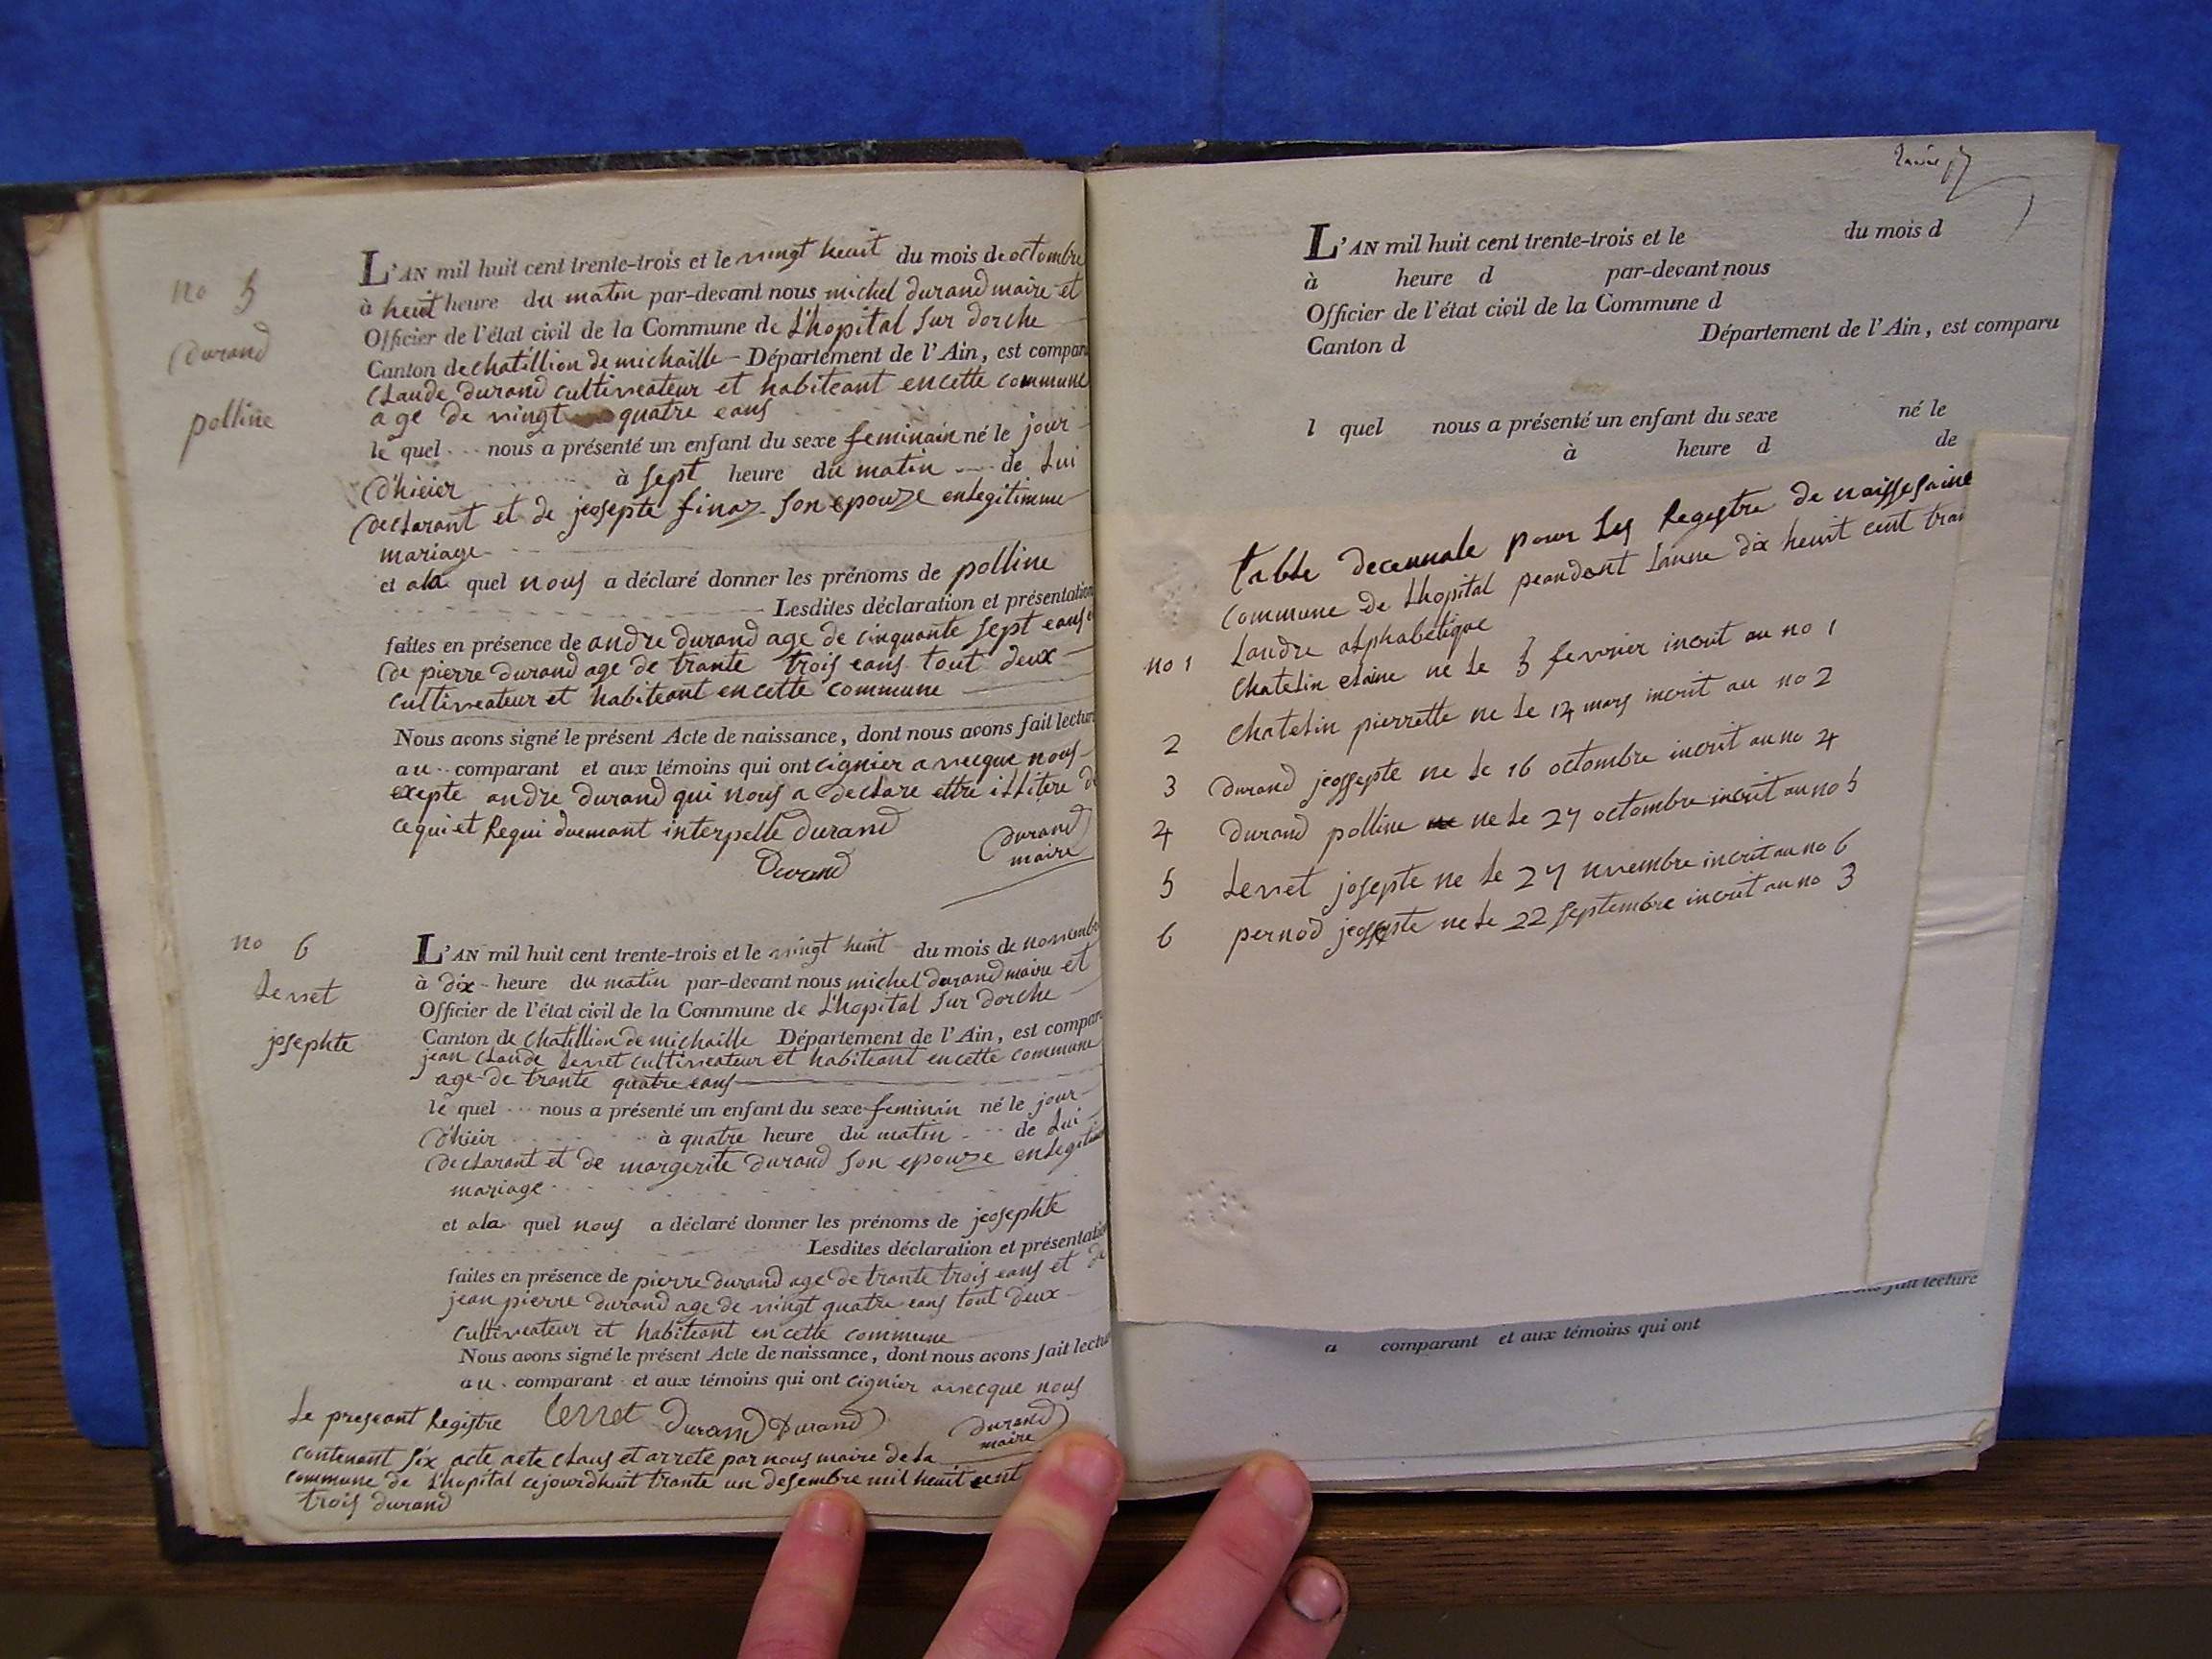 no 5
durand
polline
L'AN mil huit cent trente-trois et le vingt heuit du mois de octombre
à heuit heure du matin par-devant nous michel durand maire et
Officier de l'état civil de la Commune de L'hopital sur dorche
Canton de chatillion de michaille Département de l'Ain, est compar
Claude durand cultiveateur et habiteant en cette commune
age de vingt quatre eans
le quel nous a présenté un enfant du sexe feminain né le jour
d'hieier à sept heure du matin de lui
declarant et de jeosepte finaz son epouze en legitimme
mariage
et a la quel nous a déclaré donner les prénoms de polline
Lesdites déclaration et présentation
faites en présence de andre durand age de cinquante sept eans et
de pierre durand age de trante trois eans tout deux
cultiveateur et habiteant en cette commune
Nous avons signé le présent Acte de naissance, dont nous avons fait lectur
au comparant et aux témoins qui ont cignier avecque nous
exepte andre durand qui nous a declare ettre illitere de
ce qui et Requi duemant interpelle durand
durand
durand
maire
no 6
Levret
josephte
L'AN mil huit cent trente-trois et le vingt heuit du mois de novembr
à dix heure du matin par-devant nous michel durand maire et
Officier de l'état civil de la Commune de L'hopital sur dorche
Canton de Chatillion de michaille Département de l'Ain, est compar
jean claude Levret cultiveateur et habiteant en cette commune
age de trante quatre eans
le quel nous a présenté un enfant du sexe feminin né le jour
d'hieir à quatre heure du matin de lui
declarant et de margerite durand son epouze en legitim
mariage
et a la quel nous a déclaré donner les prénoms de jeosephte
Lesdites déclaration et présentatio
faites en présence de pierre durand age de trante trois eans et de
jean pierre durand age de vingt quatre eans tout deux
cultiveateur et habiteant en cette commune
Nous avons signé le présent Acte de naissance, dont nous avons fait lectu
au comparant et aux témoins qui ont cignier avecque nous
Le preseant Registre Levret Durand Durand durand
maire
contenant six acte acte claus et arrete par nous maire de la
commune de L'hopital cejourdhuit trante un desembre mil heuit cent
trois durand
L'AN mil huit cent trente-trois et le du mois d
à heure d par-devant nous
Officier de l'état civil de la Commune d
Canton d Département de l'Ain, est comparu
l quel nous a présenté un enfant du sexe né le
à heure d de
table decennale pour les Registre de naissesaine
commune de Lhopital peandent Lanne dix heuit cent tran
Laudre alphabetique
no 1 Chatelin claine ne le 5 fevrier incrit au no 1
2 Chatelin pierrette ne le 14 mars incrit au no 2
3 durand jeosepte ne le 16 octombre incrit au no 4
4 durand polline ne ne le 27 octombre incrit au no 5
5 Levret josepte ne le 27 nvembre incrit au no 6
6 pernod jeosepte ne le 22 septembre incrit au no 3
fait lecture
a comparant et aux témoins qui ont